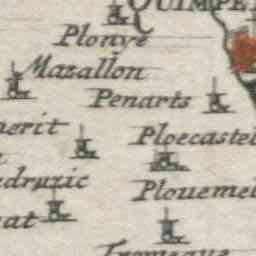 QUIMPE
Plonye
Mazallon
Penarts
nerit
Ploecastel
edruzic
Plouemel
at